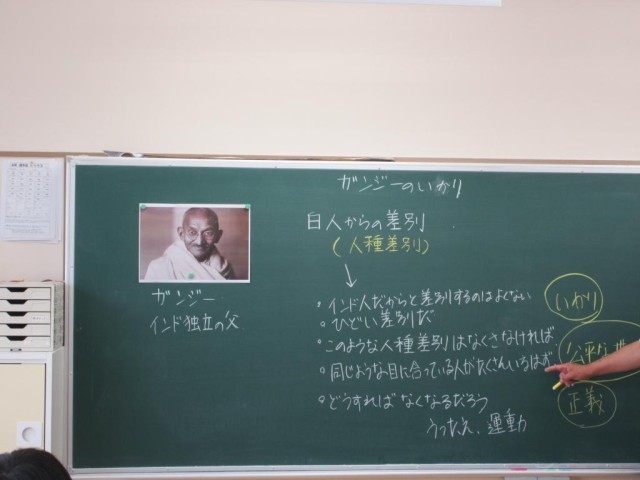 ガンジーのいかり
白人からの差別
(人種差別)
↓
ガンジー
インド独立の父
・インド人だからと差別するのはよくない
・ひどい差別だ
・このような人種差別はなくさなければ
・同じような目に合っている人がたくさんいるはず
・どうすればなくなるだろう
うったえ、運動
いかり
公平な
正義